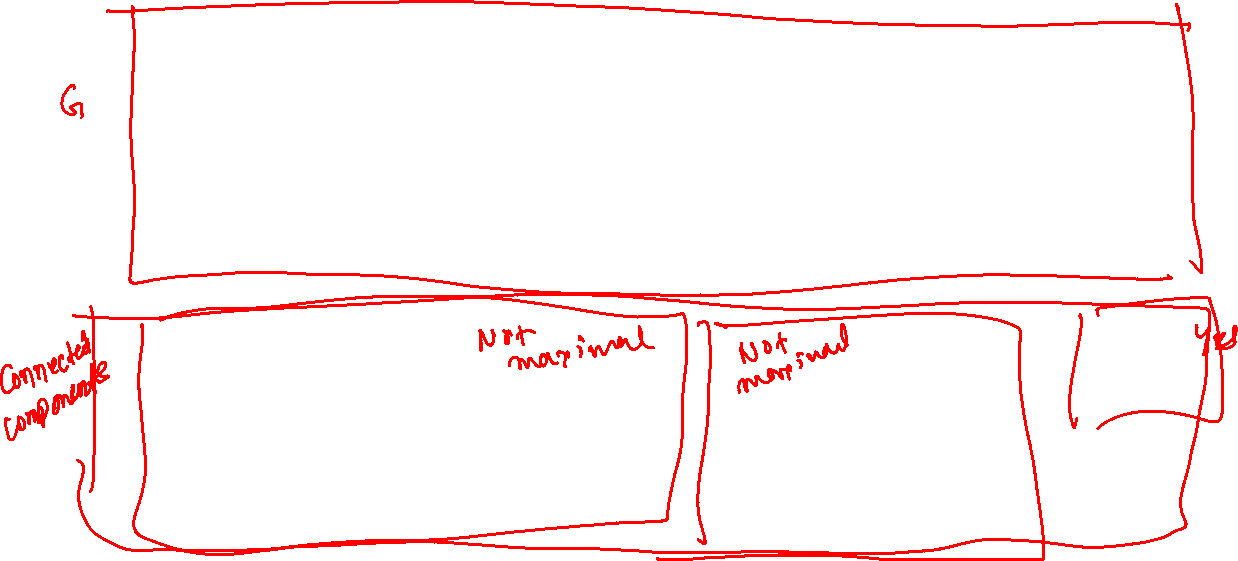 G
Connected
components
Not
maximal
Not
maximal
Yes